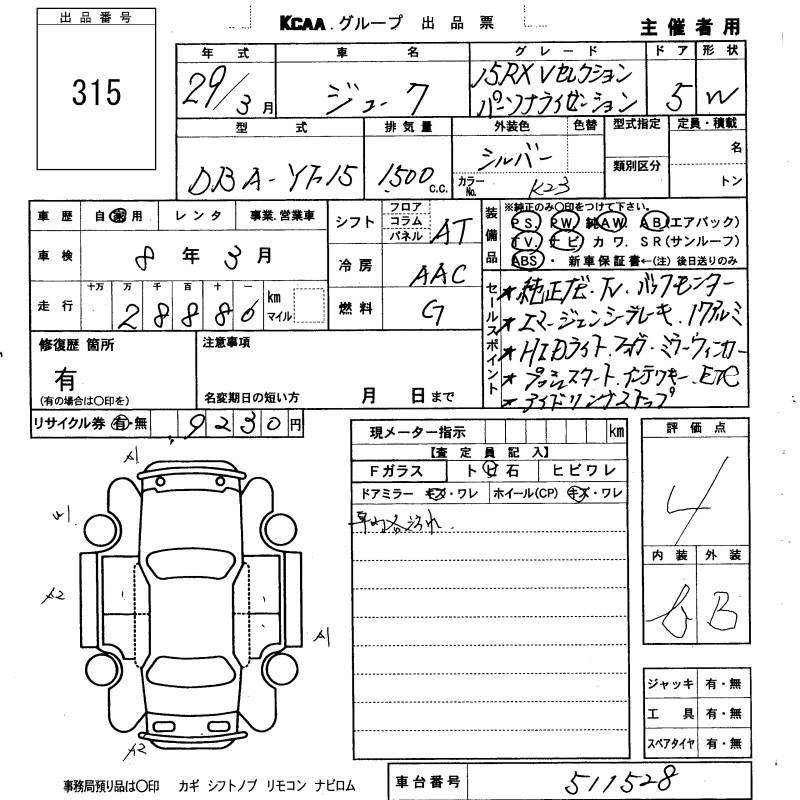 出品番号
315
KCAA.グループ 出品票
主催者用
年式 車名 グレード ドア 形状
29/3月 ジューク 15RX Vセレクション パーソナライゼーション 5 W
型式 排気量 外装色 色替 型式指定 定員・積載
DBA-YF15 1500c.c. シルバー
カラーNo. K23
類別区分
名
トン
車歴 自 家 用 レンタ 事業.営業車
車検 8年3月
走行 十万 万 千 百 十 一
28886 km マイル
シフト フロア コラム パネル AT
冷房 AAC
燃料 G
装備品
※純正のみ〇印をつけて下さい。
PS. PW. 純AW. AB(エアバック)
TV. ナビ カワ. SR(サンルーフ)
ABS・新車保証書←(注)後日送りのみ
セールスポイント
★純正ナビ.TV.バックモニター
★エマージェンシーブレーキ.17アルミ
★HIDライト.フォグ.ミラーウィンカー
★プッシュスタート.インテリキー.ETC
★アイドリングストップ
修復歴 箇所
有
(有の場合は〇印を)
注意事項
名変期日の短い方 月 日まで
リサイクル券 有・無 9230円
現メーター指示 km
【査定員記入】
Fガラス トビ石 ヒビワレ
ドアミラー キズ・ワレ ホイール(CP) キズ・ワレ
車内汚れ.
評価点
4
内装 外装
B
A1
A1
A2
A1
A2
ジャッキ 有・無
工具 有・無
スペアタイヤ 有・無
事務局預り品は〇印 カギ シフトノブ リモコン ナビロム
車台番号 511528